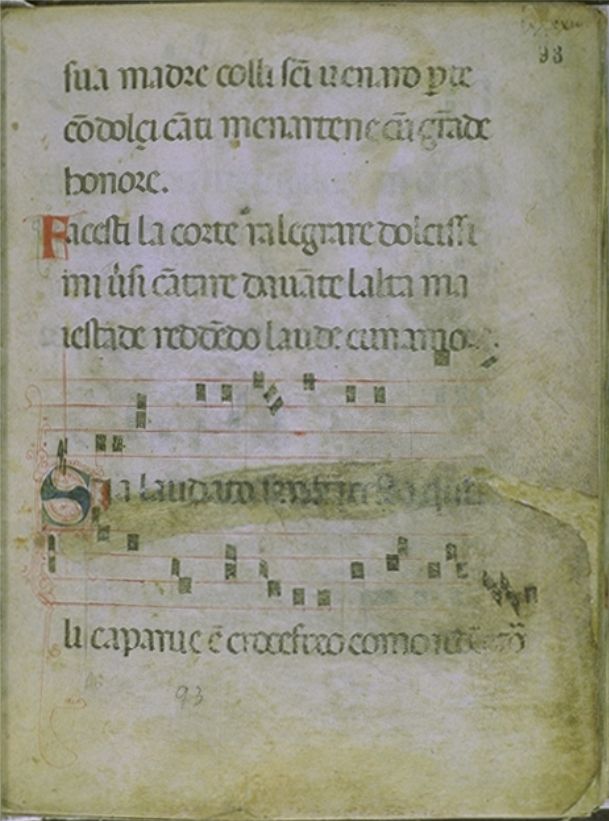 93
sua madre colli sc̃i uenaro
cõ dolçi cãti menarten e cũ grãde
honore.
Facesti la corte ralegrare dolcissi
mi uersi cãtare dauãte lalta ma
iestade redẽdo laude cun amore.
Sia laudato
li caparue ẽ crocefixo como
93